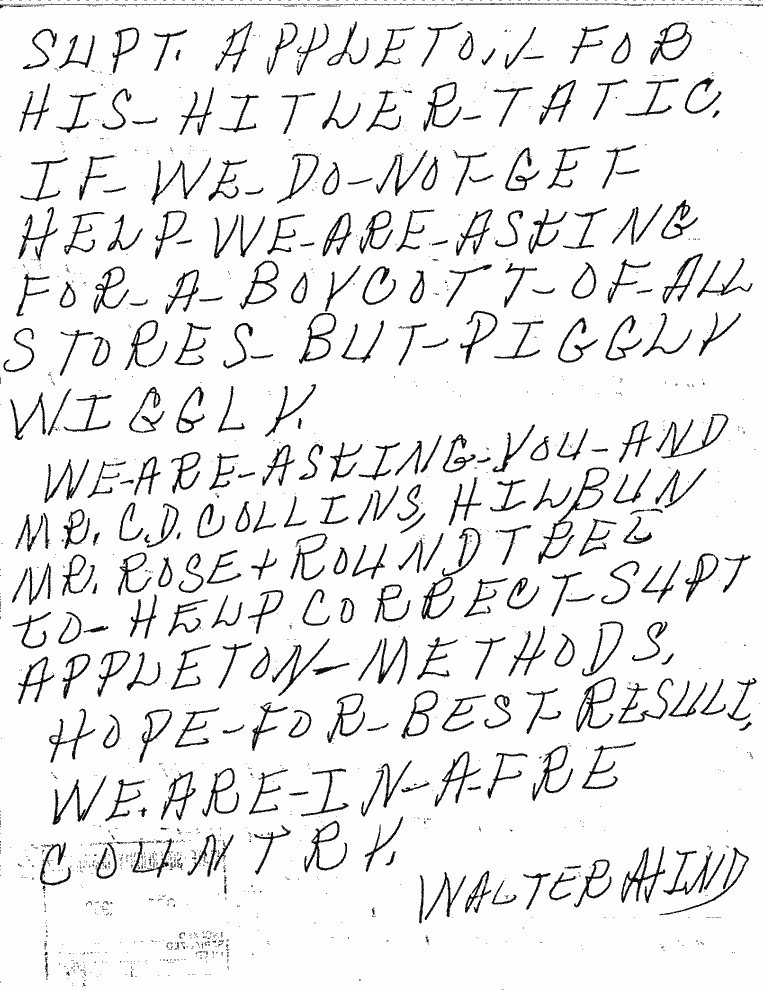 SUPT. APPLETON FOR
HIS-HITLER-TATIC.
IF-WE-DO-NOT-GET
HELP-WE-ARE-ASKING
FOR-A-BOYCOTT-OF-ALL
STORES-BUT-PIGGLY
WIGGLY.
WE-ARE-ASKING-YOU-AND
MR. C.D. COLLINS, HILBUN
MR. ROSE + ROUNDTREE
TO-HELP CORRECT-SUPT
APPLETON-METHODS.
HOPE-FOR-BEST RESULT,
WE.ARE-IN-A-FRE
COUNTRY.
WALTER